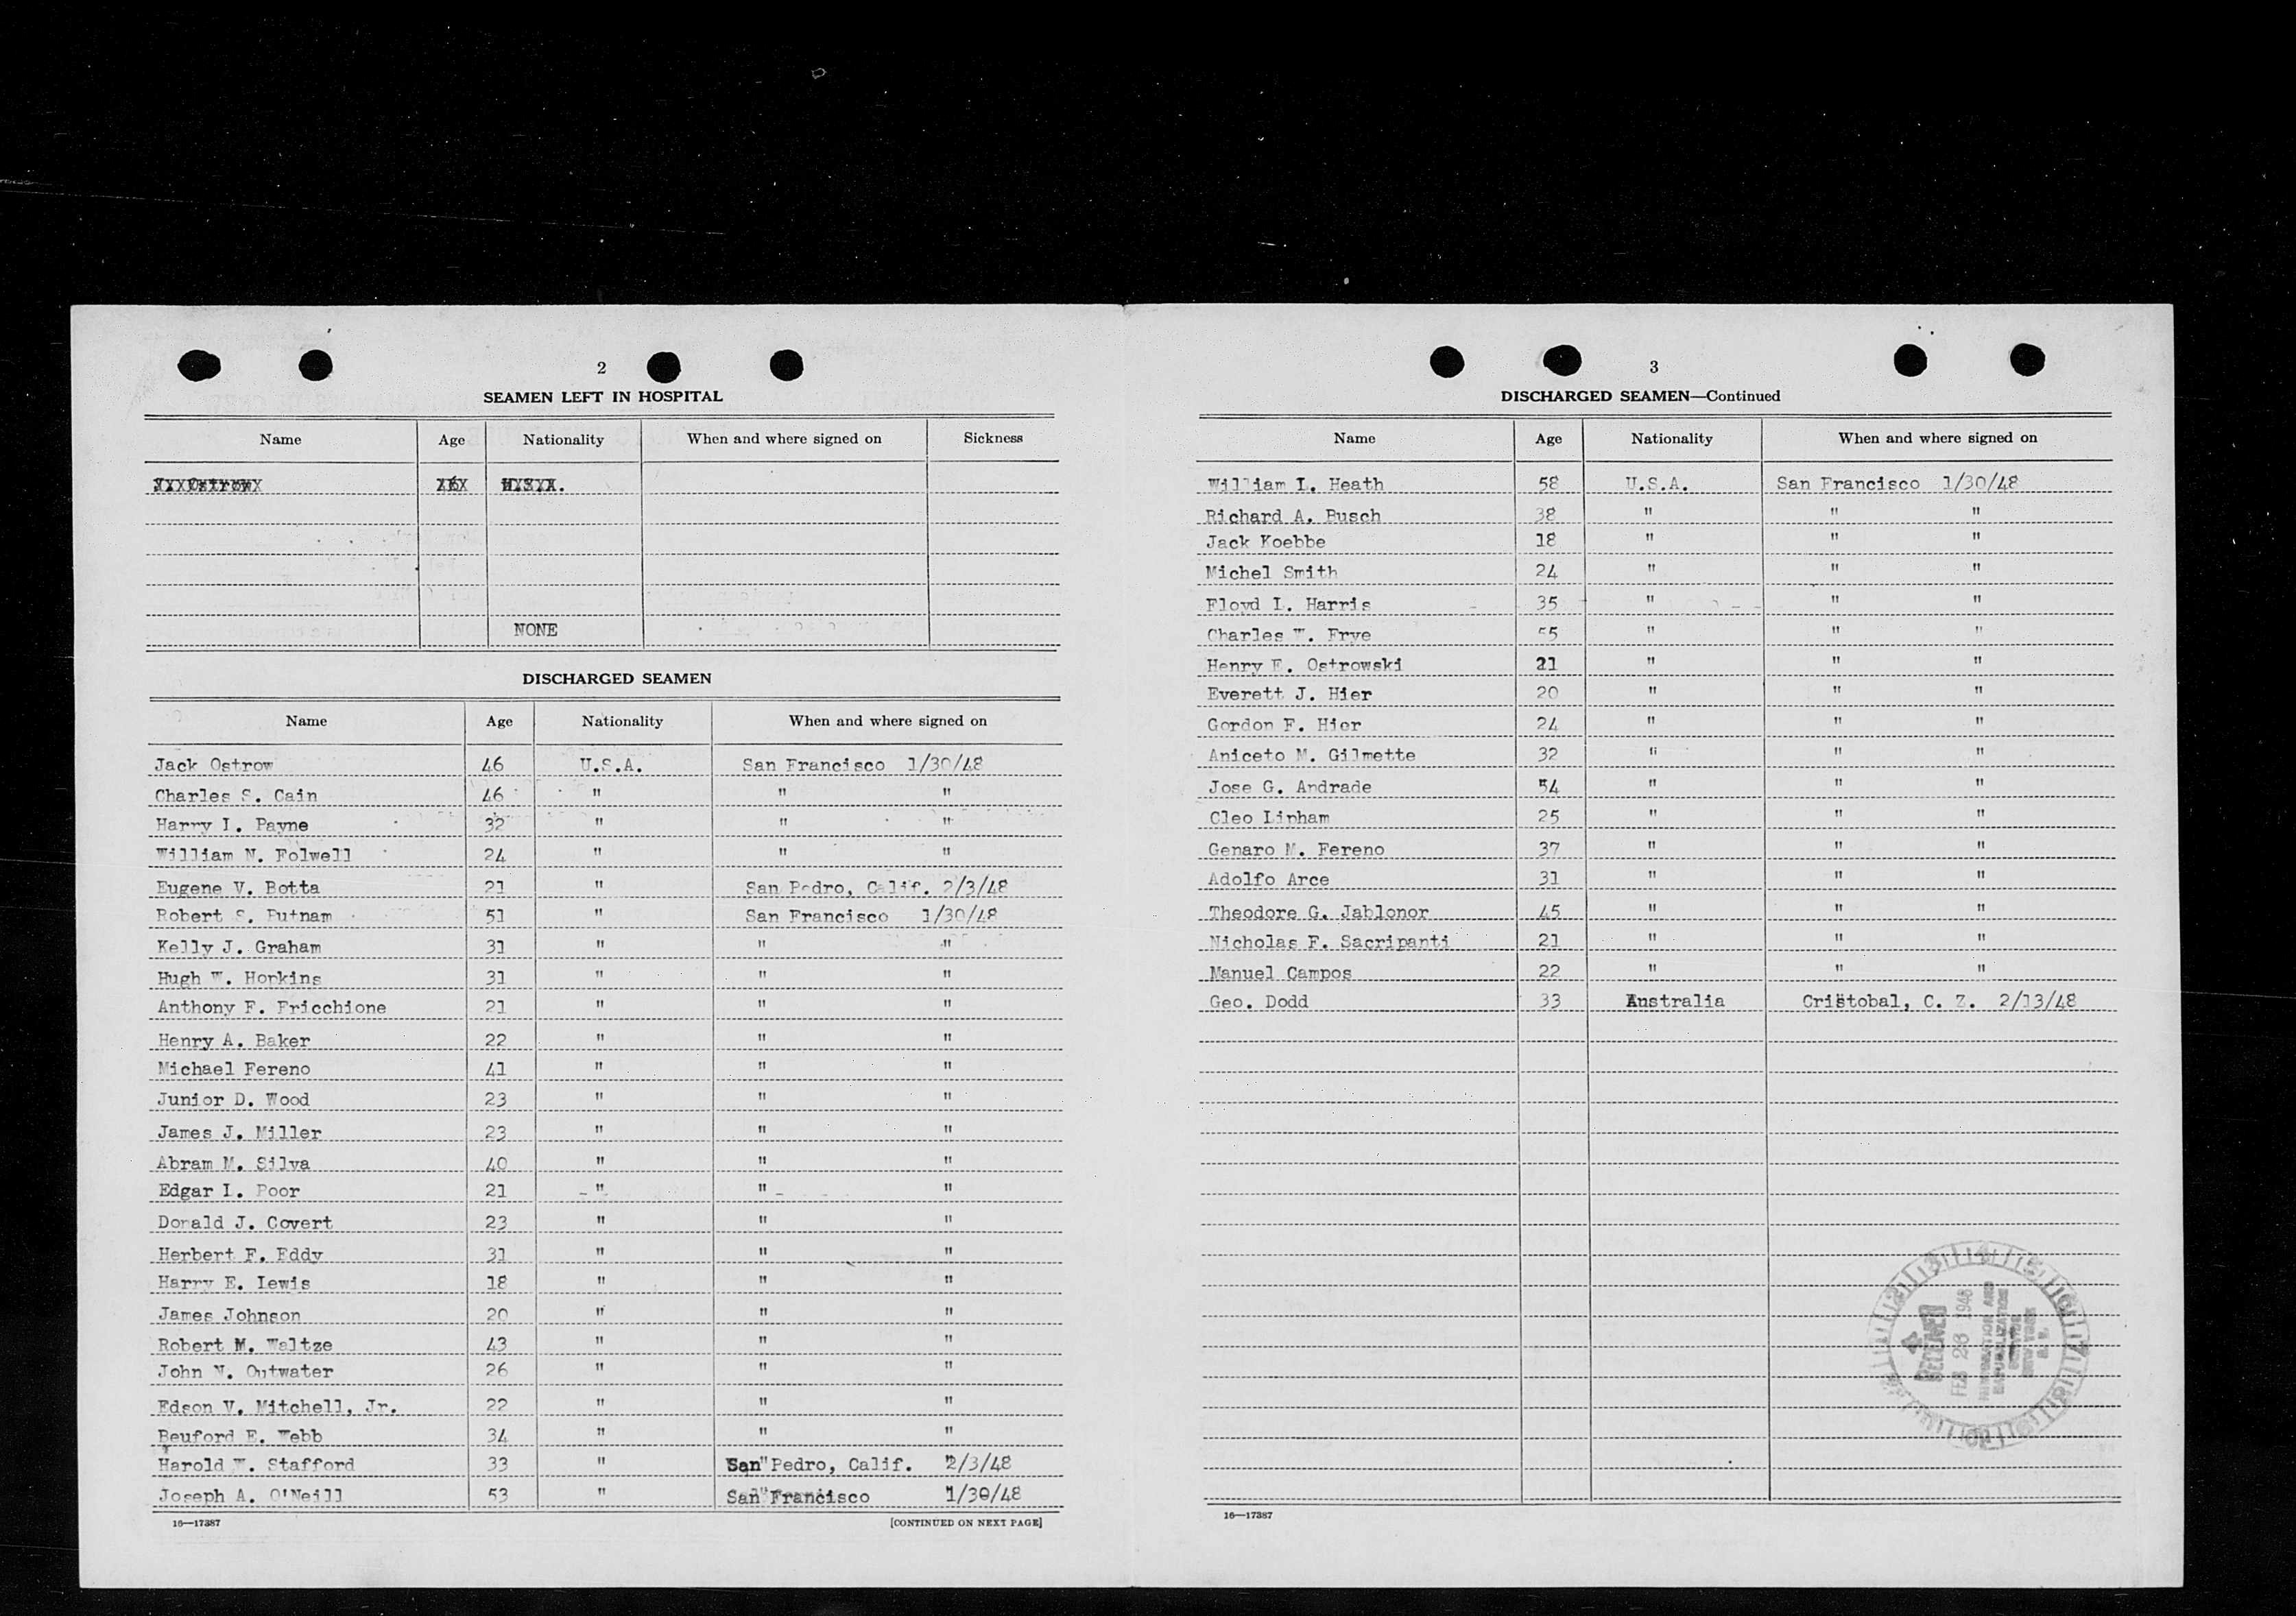 2
SEAMEN LEFT IN HOSPITAL
Name Age Nationality When and where signed on Sickness
NONE
DISCHARGED SEAMEN
Name Age Nationality When and where signed on
Jack Ostrow 46 U.S.A. San Francisco 1/30/48
Charles S. Cain 46 " " "
Harry L. Payne 32 " " "
William N. Folwell 24 " " "
Eugene V. Botta 21 " San Pedro, Calif. 2/3/48
Robert S. Putnam 51 " San Francisco 1/30/48
Kelly J. Graham 31 " " "
Hugh W. Hopkins 31 " " "
Anthony F. Fricchione 21 " " "
Henry A. Baker 22 " " "
Michael Fereno 41 " " "
Junior D. Wood 23 " " "
James J. Miller 23 " " "
Abram M. Silva 40 " " "
Edgar L. Poor 21 " " "
Donald J. Covert 23 " " "
Herbert F. Eddy 31 " " "
Harry E. Lewis 18 " " "
James Johnson 20 " " "
Robert M. Waltze 43 " " "
John N. Outwater 26 " " "
Edson V. Mitchell, Jr. 22 " " "
Beuford E. Webb 34 " " "
Harold W. Stafford 33 " San Pedro, Calif. 2/3/48
Joseph A. O'Neill 53 " San Francisco 1/30/48
16—17387 [CONTINUED ON NEXT PAGE]
3
DISCHARGED SEAMEN—Continued
Name Age Nationality When and where signed on
William L. Heath 58 U.S.A. San Francisco 1/30/48
Richard A. Busch 38 " " "
Jack Koebbe 18 " " "
Michel Smith 24 " " "
Floyd L. Harris 35 " " "
Charles W. Frye 55 " " "
Henry E. Ostrowski 21 " " "
Everett J. Hier 20 " " "
Gordon F. Hier 24 " " "
Aniceto M. Gilmette 32 " " "
Jose G. Andrade 54 " " "
Cleo Linham 25 " " "
Genaro M. Fereno 37 " " "
Adolfo Arce 31 " " "
Theodore G. Jablonor 45 " " "
Nicholas F. Sacripanti 21 " " "
Manuel Campos 22 " " "
Geo. Dodd 33 Australia Cristobal, C. Z. 2/13/48
RECEIVED
FEB 26 1948
IMMIGRATION AND
NATURALIZATION
SERVICE
NEW YORK
N. Y.
16—17387